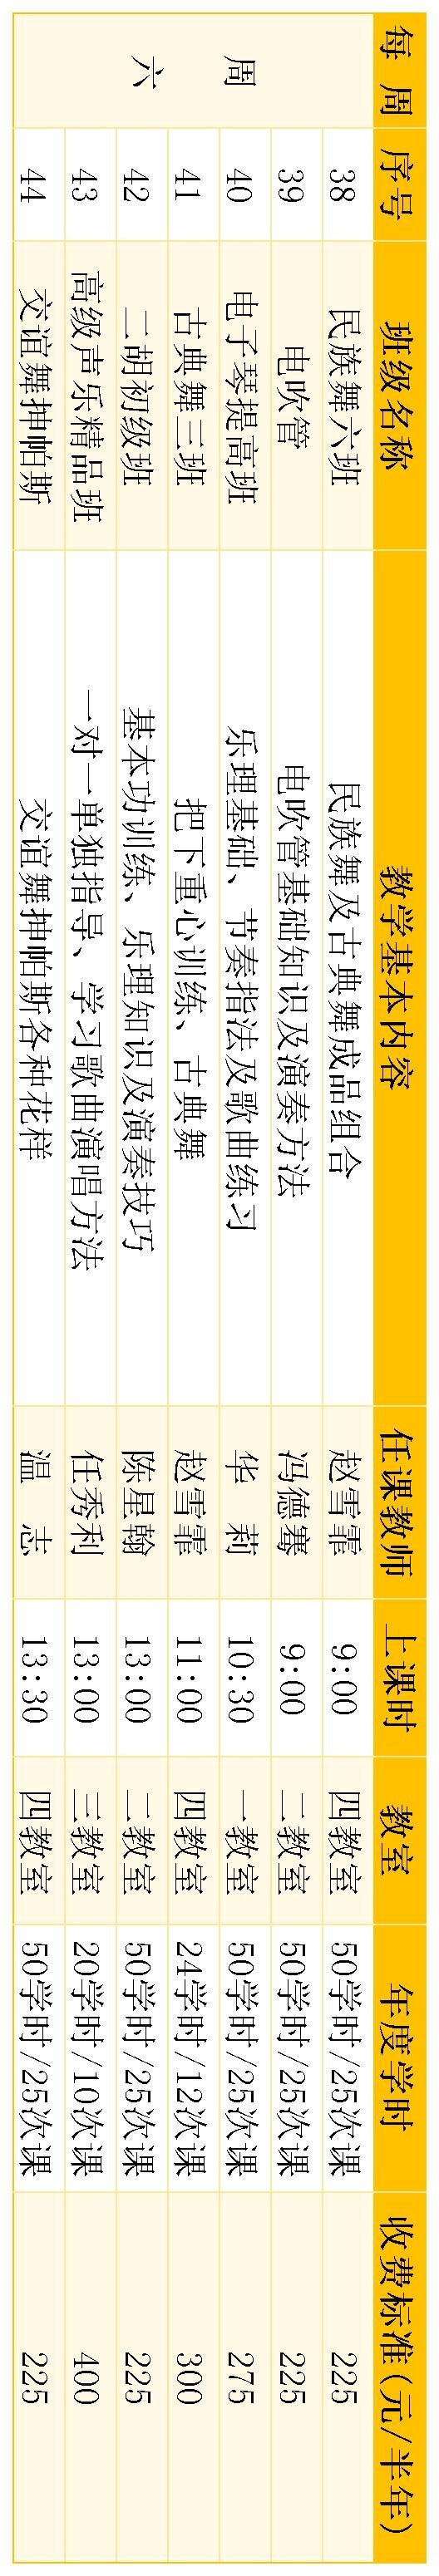 每 周 序号 班级名称 教学基本内容 任课教师 上课时 教室 年度学时 收费标准(元/半年)
周六
38 民族舞六班 民族舞及古典舞成品组合 赵雪霏 9:00 四教室 50学时/25次课 225
39 电吹管 电吹管基础知识及演奏方法 冯德骞 9:00 二教室 50学时/25次课 225
40 电子琴提高班 乐理基础、节奏指法及歌曲练习 华 莉 10:30 一教室 50学时/25次课 275
41 古典舞三班 把下重心训练、古典舞 赵雪霏 11:00 四教室 24学时/12次课 300
42 二胡初级班 基本功训练、乐理知识及演奏技巧 陈星翰 13:00 二教室 50学时/25次课 225
43 高级声乐精品班 一对一单独指导、学习歌曲演唱方法 任秀利 13:00 三教室 20学时/10次课 400
44 交谊舞抻帕斯 交谊舞抻帕斯各种花样 温 志 13:30 四教室 50学时/25次课 225